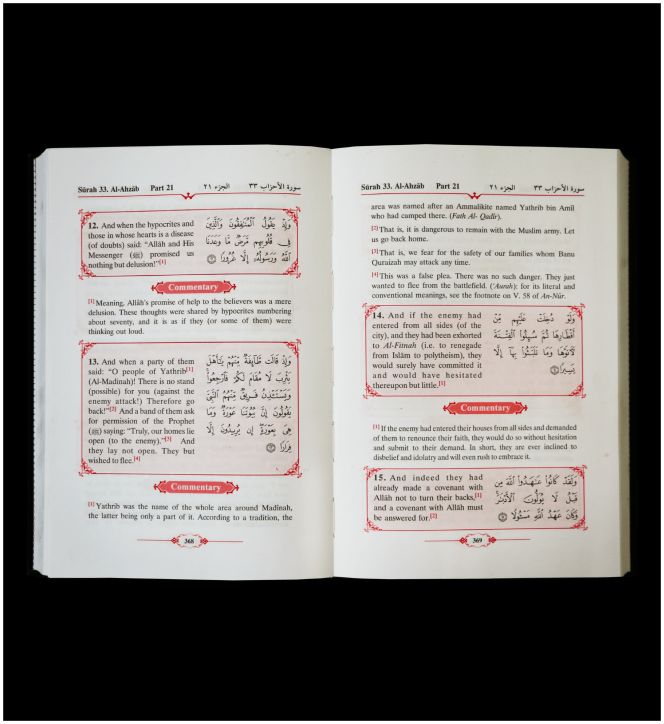 Sūrah 33. Al-Ahzāb Part 21 الجزء ٢١ سورة الأحزاب ٣٣
12. And when the hypocrites and
those in whose hearts is a disease
(of doubts) said: "Allāh and His
Messenger (ﷺ) promised us
nothing but delusion!"[1]
وَإِذْ يَقُولُ ٱلْمُنَٰفِقُونَ وَٱلَّذِينَ
فِى قُلُوبِهِم مَّرَضٌ مَّا وَعَدَنَا
ٱللَّهُ وَرَسُولُهُۥٓ إِلَّا غُرُورًا ١٢
Commentary
[1] Meaning, Allāh's promise of help to the believers was a mere
delusion. These thoughts were shared by hypocrites numbering
about seventy, and it is as if they (or some of them) were
thinking out loud.
13. And when a party of them
said: "O people of Yathrib[1]
(Al-Madinah)! There is no stand
(possible) for you (against the
enemy attack!) Therefore go
back!"[2] And a band of them ask
for permission of the Prophet
(ﷺ) saying: "Truly, our homes lie
open (to the enemy)."[3] And
they lay not open. They but
wished to flee.[4]
وَإِذْ قَالَت طَّآئِفَةٌ مِّنْهُمْ يَٰٓأَهْلَ
يَثْرِبَ لَا مُقَامَ لَكُمْ فَٱرْجِعُوا۟
وَيَسْتَـْٔذِنُ فَرِيقٌ مِّنْهُمُ ٱلنَّبِىَّ
يَقُولُونَ إِنَّ بُيُوتَنَا عَوْرَةٌ وَمَا
هِىَ بِعَوْرَةٍ إِن يُرِيدُونَ إِلَّا
فِرَارًا ١٣
Commentary
[1] Yathrib was the name of the whole area around Madīnah,
the latter being only a part of it. According to a tradition, the
368
Sūrah 33. Al-Ahzāb Part 21 الجزء ٢١ سورة الأحزاب ٣٣
area was named after an Ammalikite named Yathrib bin Amīl
who had camped there. (Fath Al- Qadir).
[2] That is, it is dangerous to remain with the Muslim army. Let
us go back home.
[3] That is, we fear for the safety of our families whom Banu
Quraizah may attack any time.
[4] This was a false plea. There was no such danger. They just
wanted to flee from the battlefield. ('Aurah): for its literal and
conventional meanings, see the footnote on V. 58 of An-Nūr.
14. And if the enemy had
entered from all sides (of the
city), and they had been exhorted
to Al-Fitnah (i.e. to renegade
from Islām to polytheism), they
would surely have committed it
and would have hesitated
thereupon but little.[1]
وَلَوْ دُخِلَتْ عَلَيْهِم مِّنْ
أَقْطَارِهَا ثُمَّ سُئِلُوا۟ ٱلْفِتْنَةَ
لَـَٔاتَوْهَا وَمَا تَلَبَّثُوا۟ بِهَآ إِلَّا
يَسِيرًا ١٤
Commentary
[1] If the enemy had entered their houses from all sides and demanded
of them to renounce their faith, they would do so without hesitation
and submit to their demand. In short, they are ever inclined to
disbelief and idolatry and will even rush to embrace it.
15. And indeed they had
already made a covenant with
Allāh not to turn their backs,[1]
and a covenant with Allāh must
be answered for.[2]
وَلَقَدْ كَانُوا۟ عَٰهَدُوا۟ ٱللَّهَ مِن
قَبْلُ لَا يُوَلُّونَ ٱلْأَدْبَٰرَ
وَكَانَ عَهْدُ ٱللَّهِ مَسْـُٔولًا ١٥
369